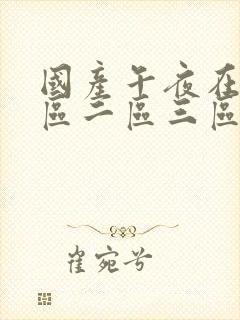 國產午夜在
區二區三區
崔宛兮